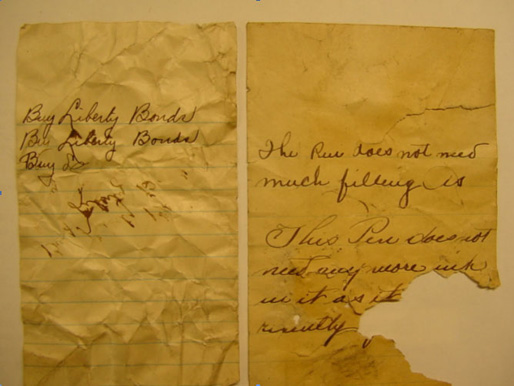 Buy Liberty Bonds
Buy Liberty Bonds
Buy
The Pen does not need
much filling is
This Pen does not
need any more ink
in it as it
recently